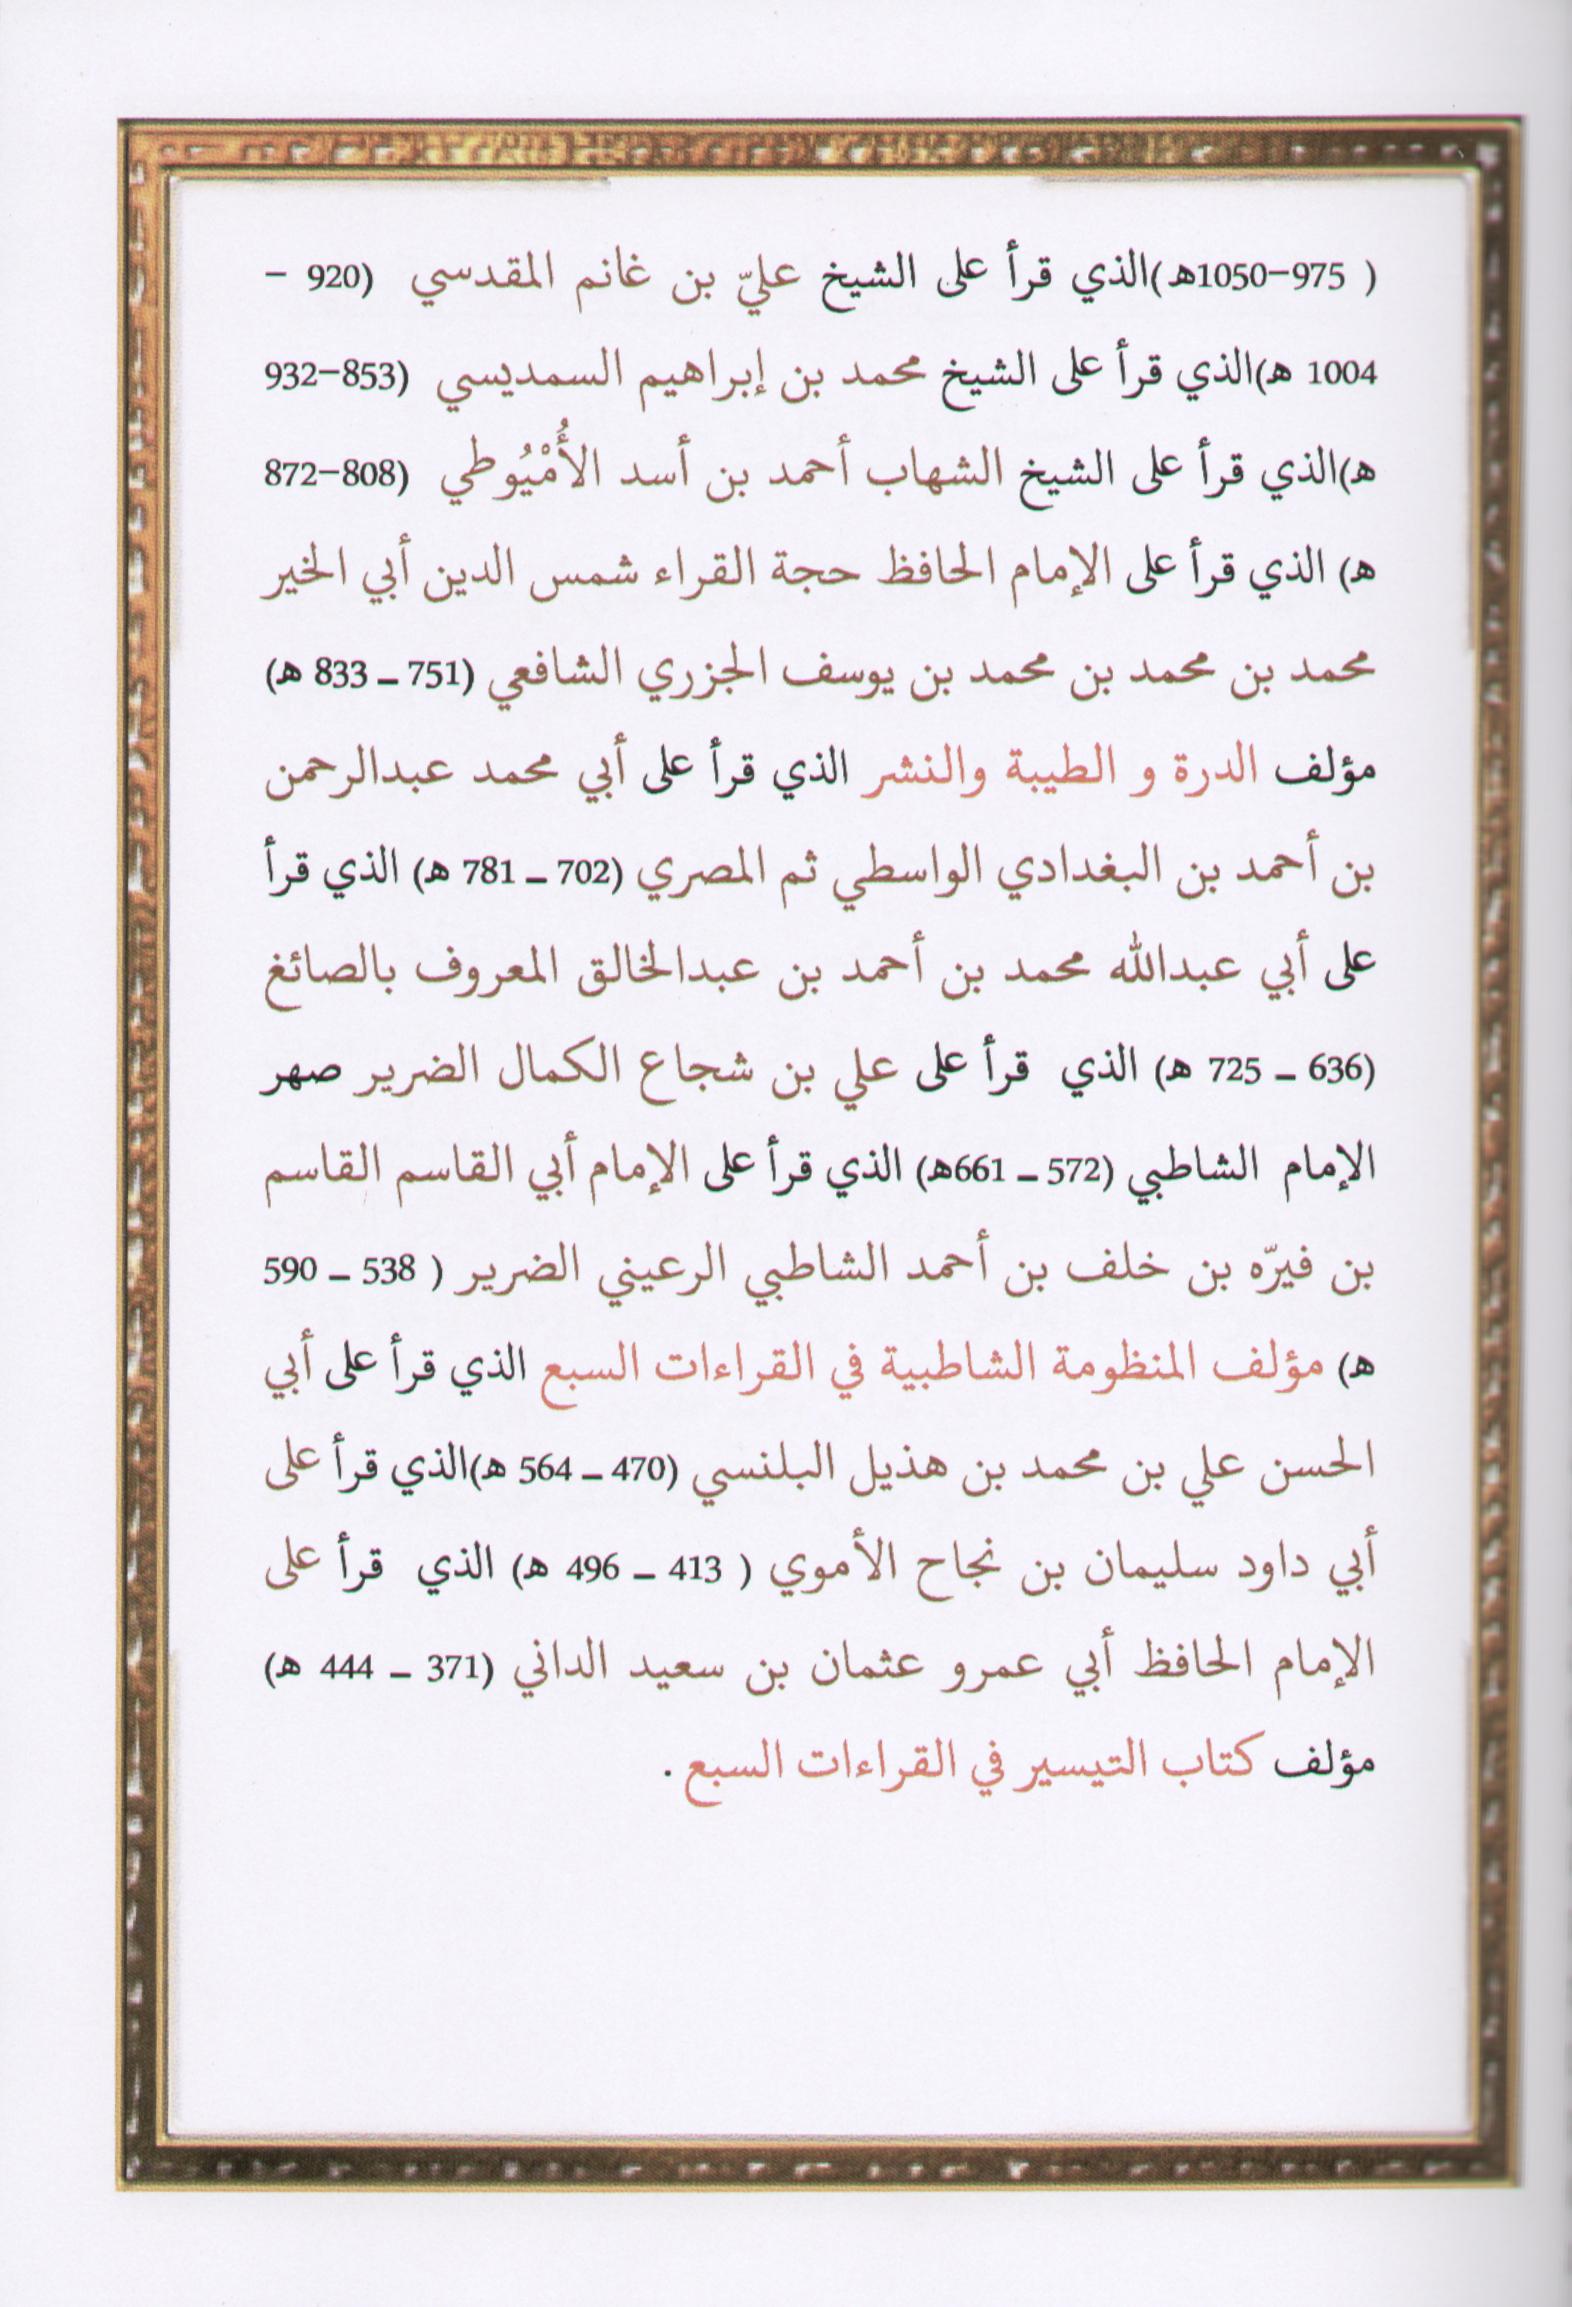 ( 975–1050هـ)الذي قرأ على الشيخ عليّ بن غانم المقدسي (920 –
1004 هـ)الذي قرأ على الشيخ محمد بن إبراهيم السمديسي (853–932
هـ)الذي قرأ على الشيخ الشهاب أحمد بن أسد الأُمْيُوطي (808–872
هـ) الذي قرأ على الإمام الحافظ حجة القراء شمس الدين أبي الخير
محمد بن محمد بن محمد بن يوسف الجزري الشافعي (751 ـ 833 هـ)
مؤلف الدرة و الطيبة والنشر الذي قرأ على أبي محمد عبدالرحمن
بن أحمد بن البغدادي الواسطي ثم المصري (702 ـ 781 هـ) الذي قرأ
على أبي عبدالله محمد بن أحمد بن عبدالخالق المعروف بالصائغ
(636 ـ 725 هـ) الذي قرأ على علي بن شجاع الكمال الضرير صهر
الإمام الشاطبي (572 ـ 661هـ) الذي قرأ على الإمام أبي القاسم القاسم
بن فيرّه بن خلف بن أحمد الشاطبي الرعيني الضرير ( 538 ـ 590
هـ) مؤلف المنظومة الشاطبية في القراءات السبع الذي قرأ على أبي
الحسن علي بن محمد بن هذيل البلنسي (470 ـ 564 هـ)الذي قرأ على
أبي داود سليمان بن نجاح الأموي ( 413 ـ 496 هـ) الذي قرأ على
الإمام الحافظ أبي عمرو عثمان بن سعيد الداني (371 ـ 444 هـ)
مؤلف كتاب التيسير في القراءات السبع .